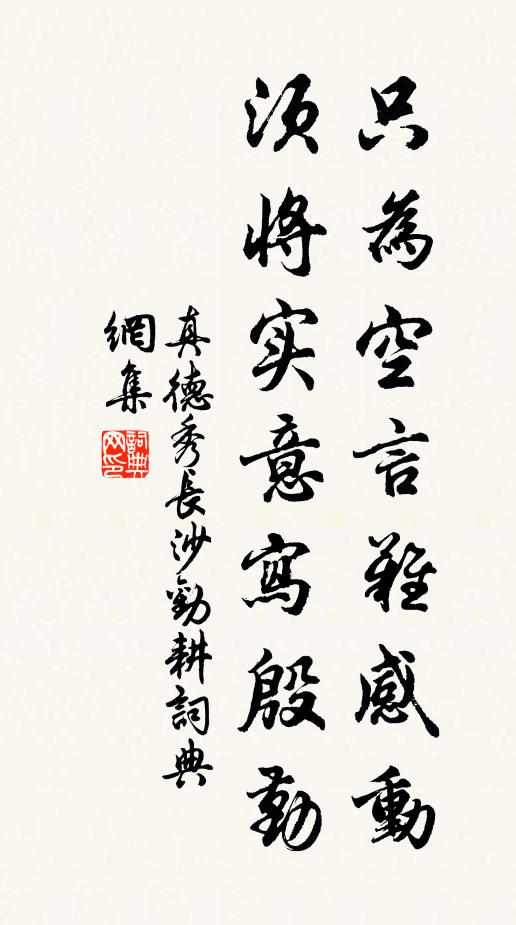 只為空言難感動
須將实意寫殷勤
真德秀長沙勸耕詞典
網集
詞典
网印